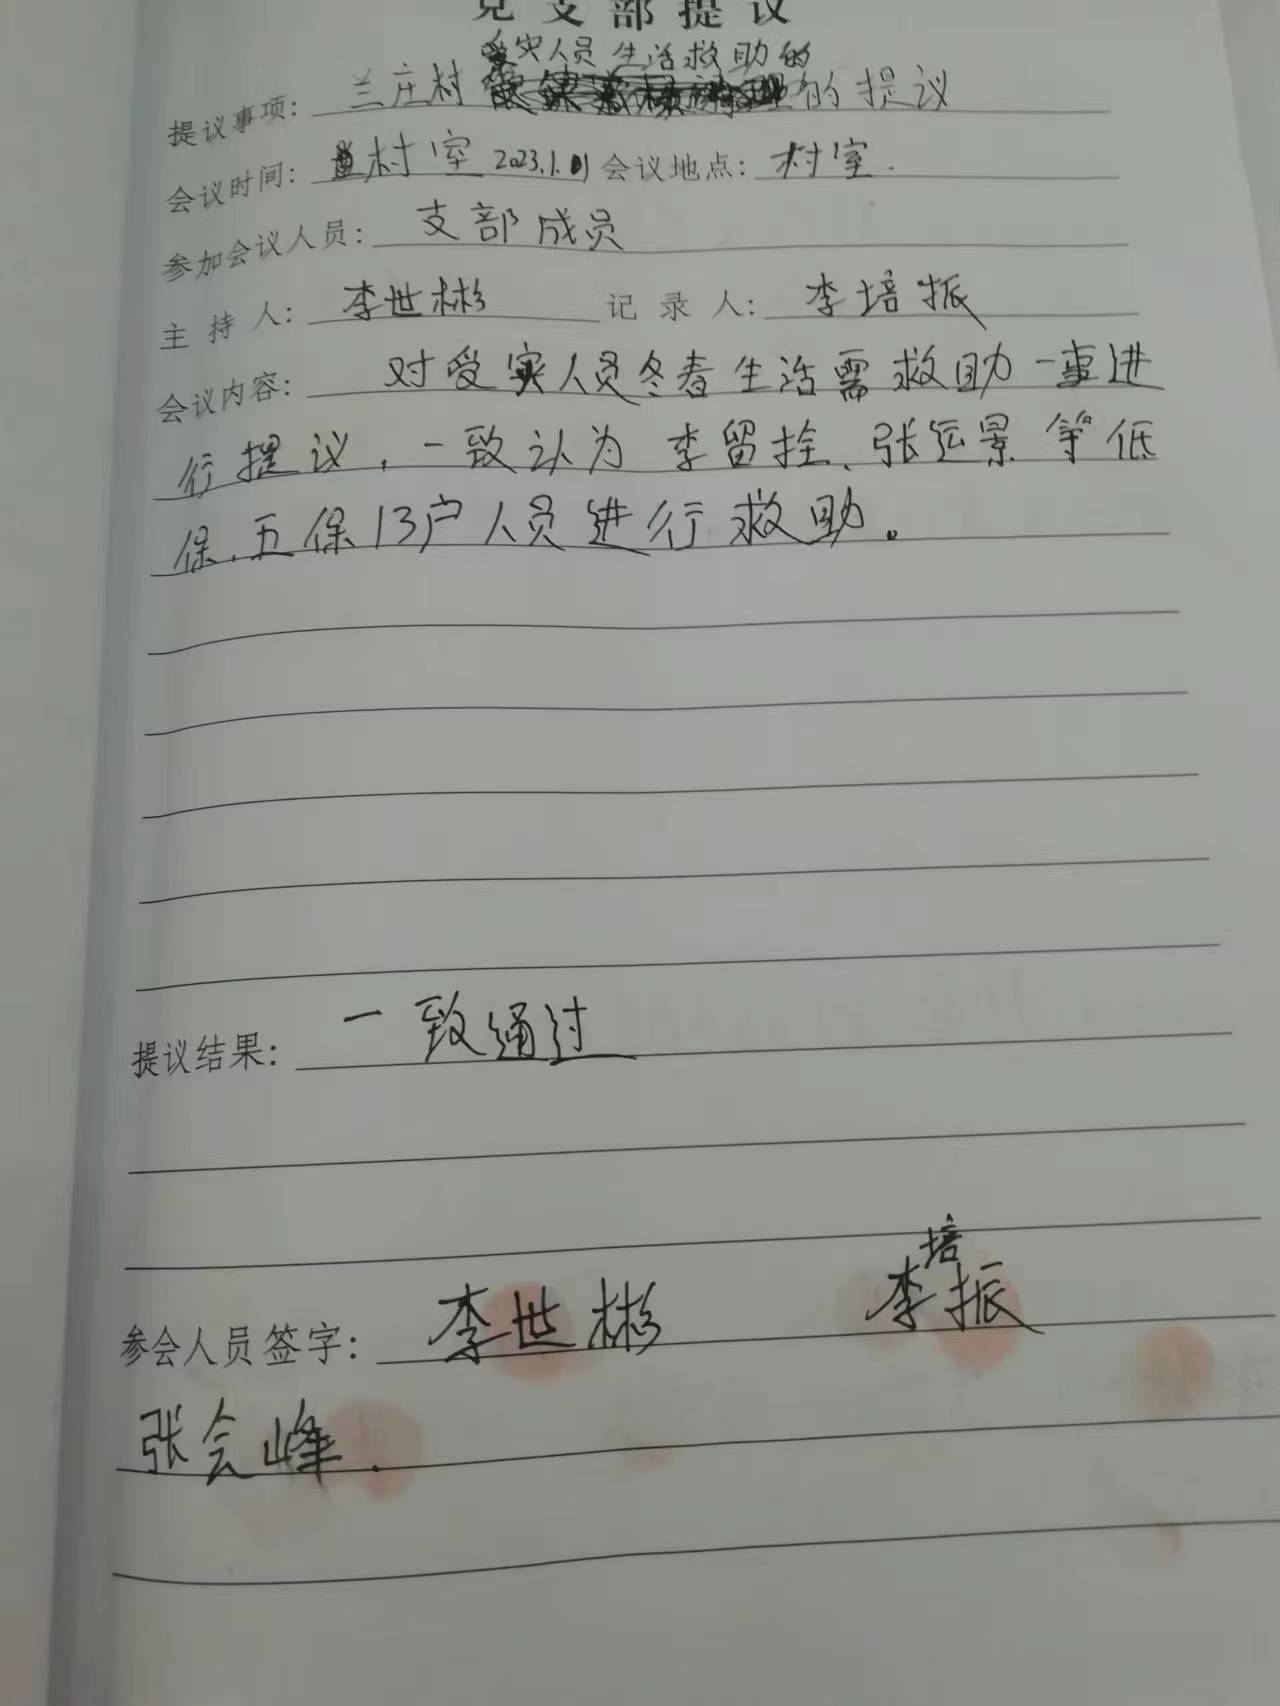 党支部提议
受灾人员生活救助的
提议事项：兰庄村的提议
会议时间：村室 2023.1.01 会议地点：村室.
参加会议人员：支部成员
主持人：李世彬 记录人：李培振
会议内容：对受灾人员冬春生活需救助一事进
行提议，一致认为李留拴、张运景等低
保、五保13户人员进行救助。
提议结果：一致通过
培
参会人员签字：李世彬 李振
张会峰.